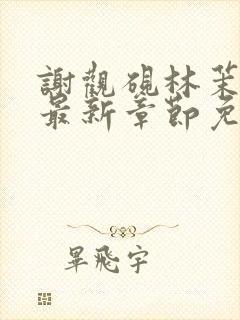 謝觀硯林茉
最新章節免
畢飛宇